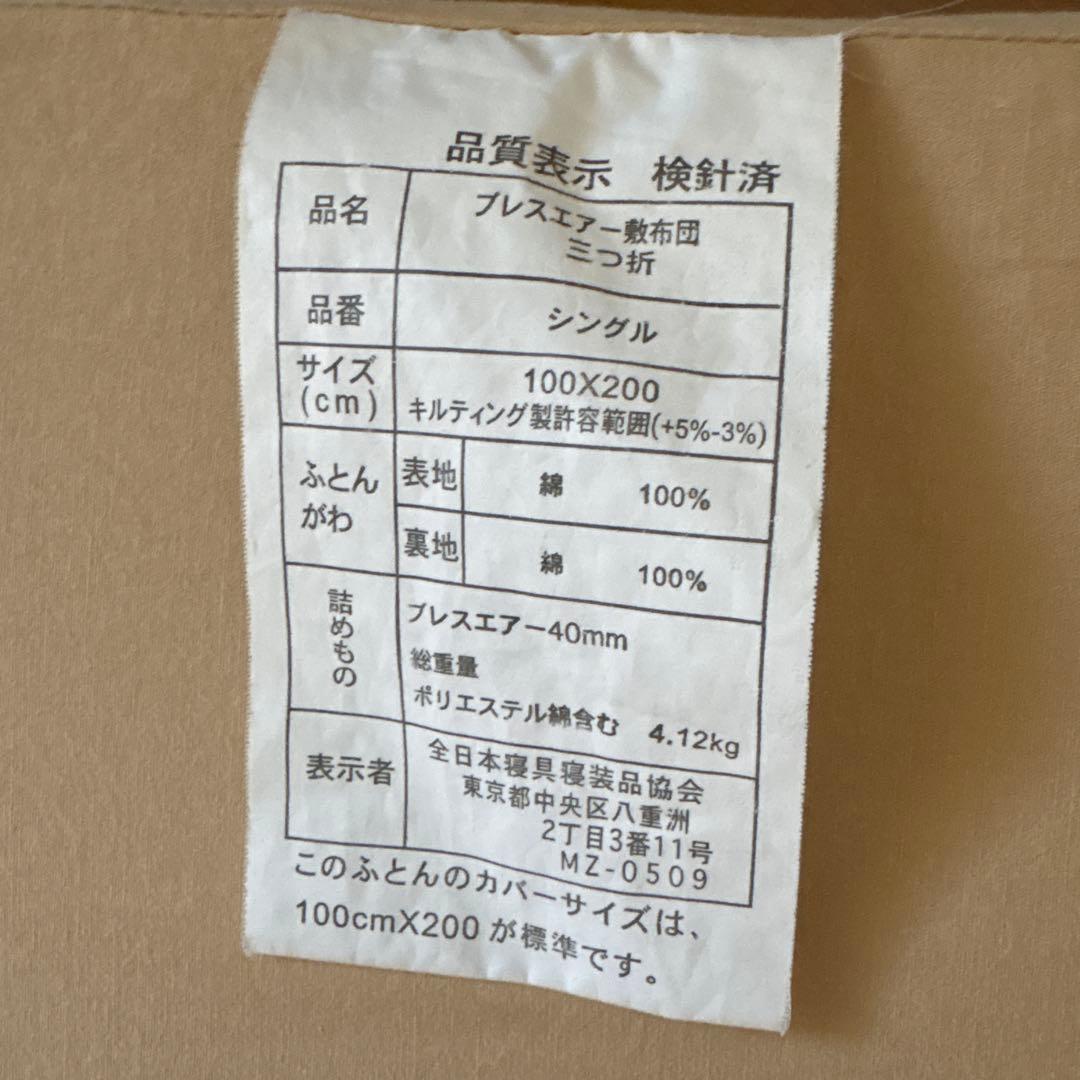 品質表示　検針済
品名
ブレスエアー敷布団
三つ折
品番
シングル
サイズ
(cm)
100X200
キルティング製許容範囲(+5%-3%)
ふとん
がわ
表地
綿　100%
裏地
綿　100%
詰めもの
ブレスエアー40mm
総重量
ポリエステル綿含む　4.12kg
表示者
全日本寝具寝装品協会
東京都中央区八重洲
2丁目3番11号
MZ-0509
このふとんのカバーサイズは、
100cmX200が標準です。